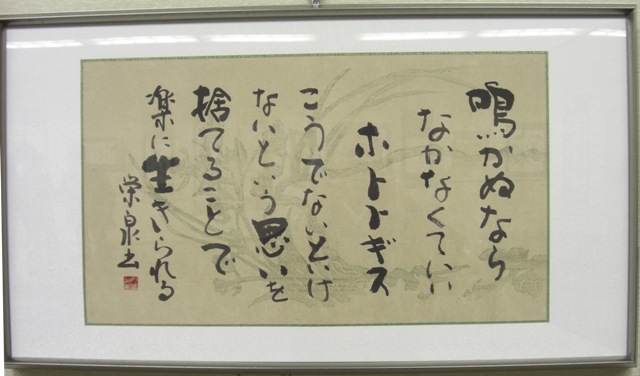 鳴かぬなら
なかなくていい
ホトトギス
こうでないといけ
ないという思いを
捨てることで
楽に生きられる
栄泉書